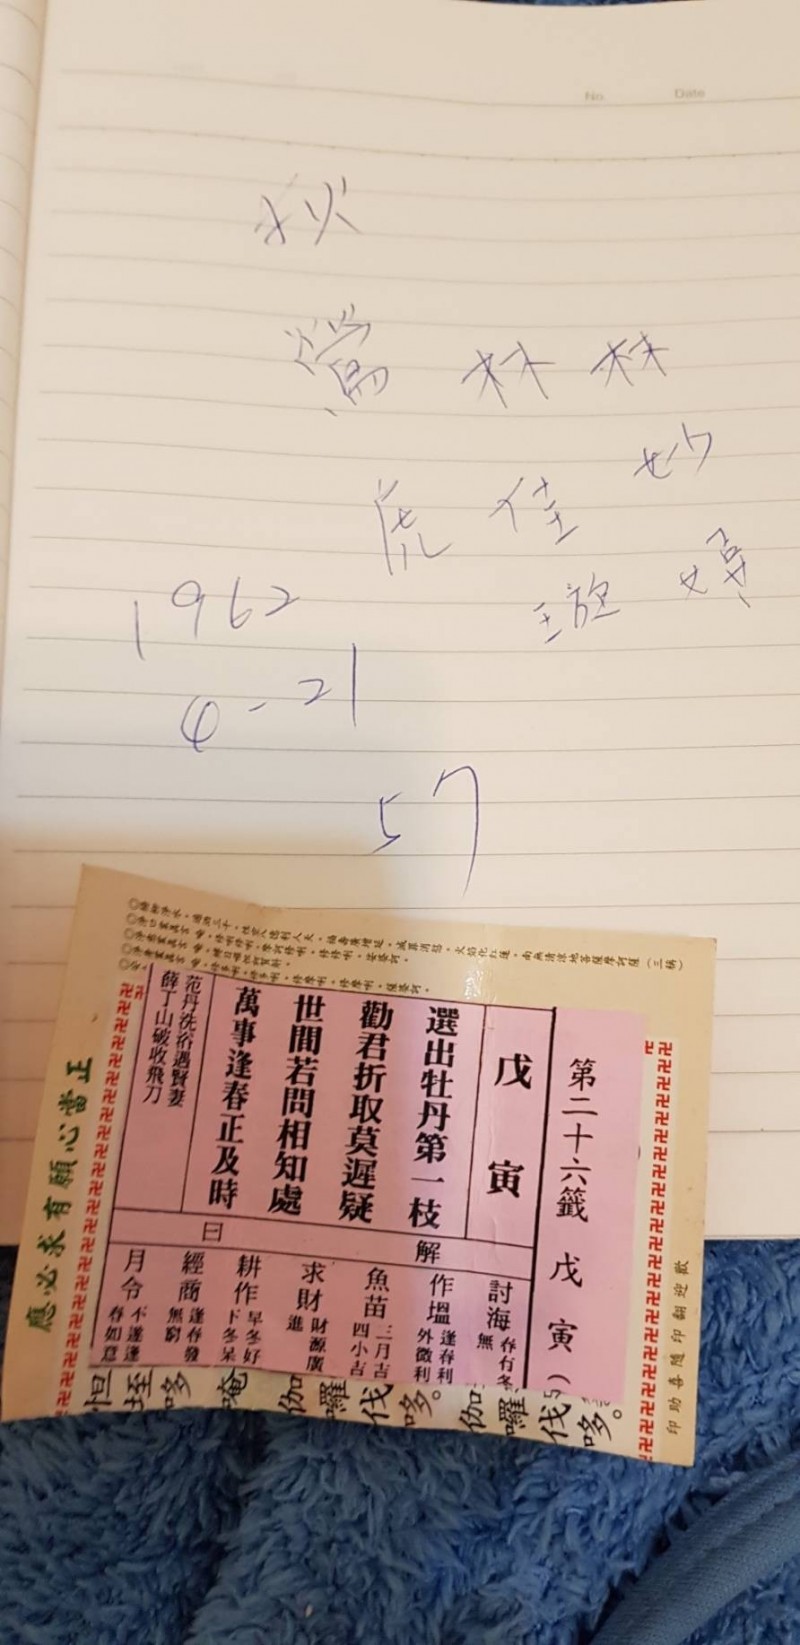 No.
Date
秋
鶯 林 林
虎 佳 妙
璇 嬣
1962
4-21
57
第二十六籤 戊寅
戊寅
選出牡丹第一枝
勸君折取莫遲疑
世間若問相知處
萬事逢春正及時
范丹洗浴遇賢妻
薛丁山破收飛刀
解曰
討海 春有冬無
作塭 逢春利外微利
魚苗 二月吉四小吉
求財 財源廣進
耕作 早冬好下冬呆
經商 逢春發無窮
月令 不遂逢春如意
正當心願有求必應
歡迎翻印隨喜助印
伽囉伐哆。
伽囉伐哆。
唵